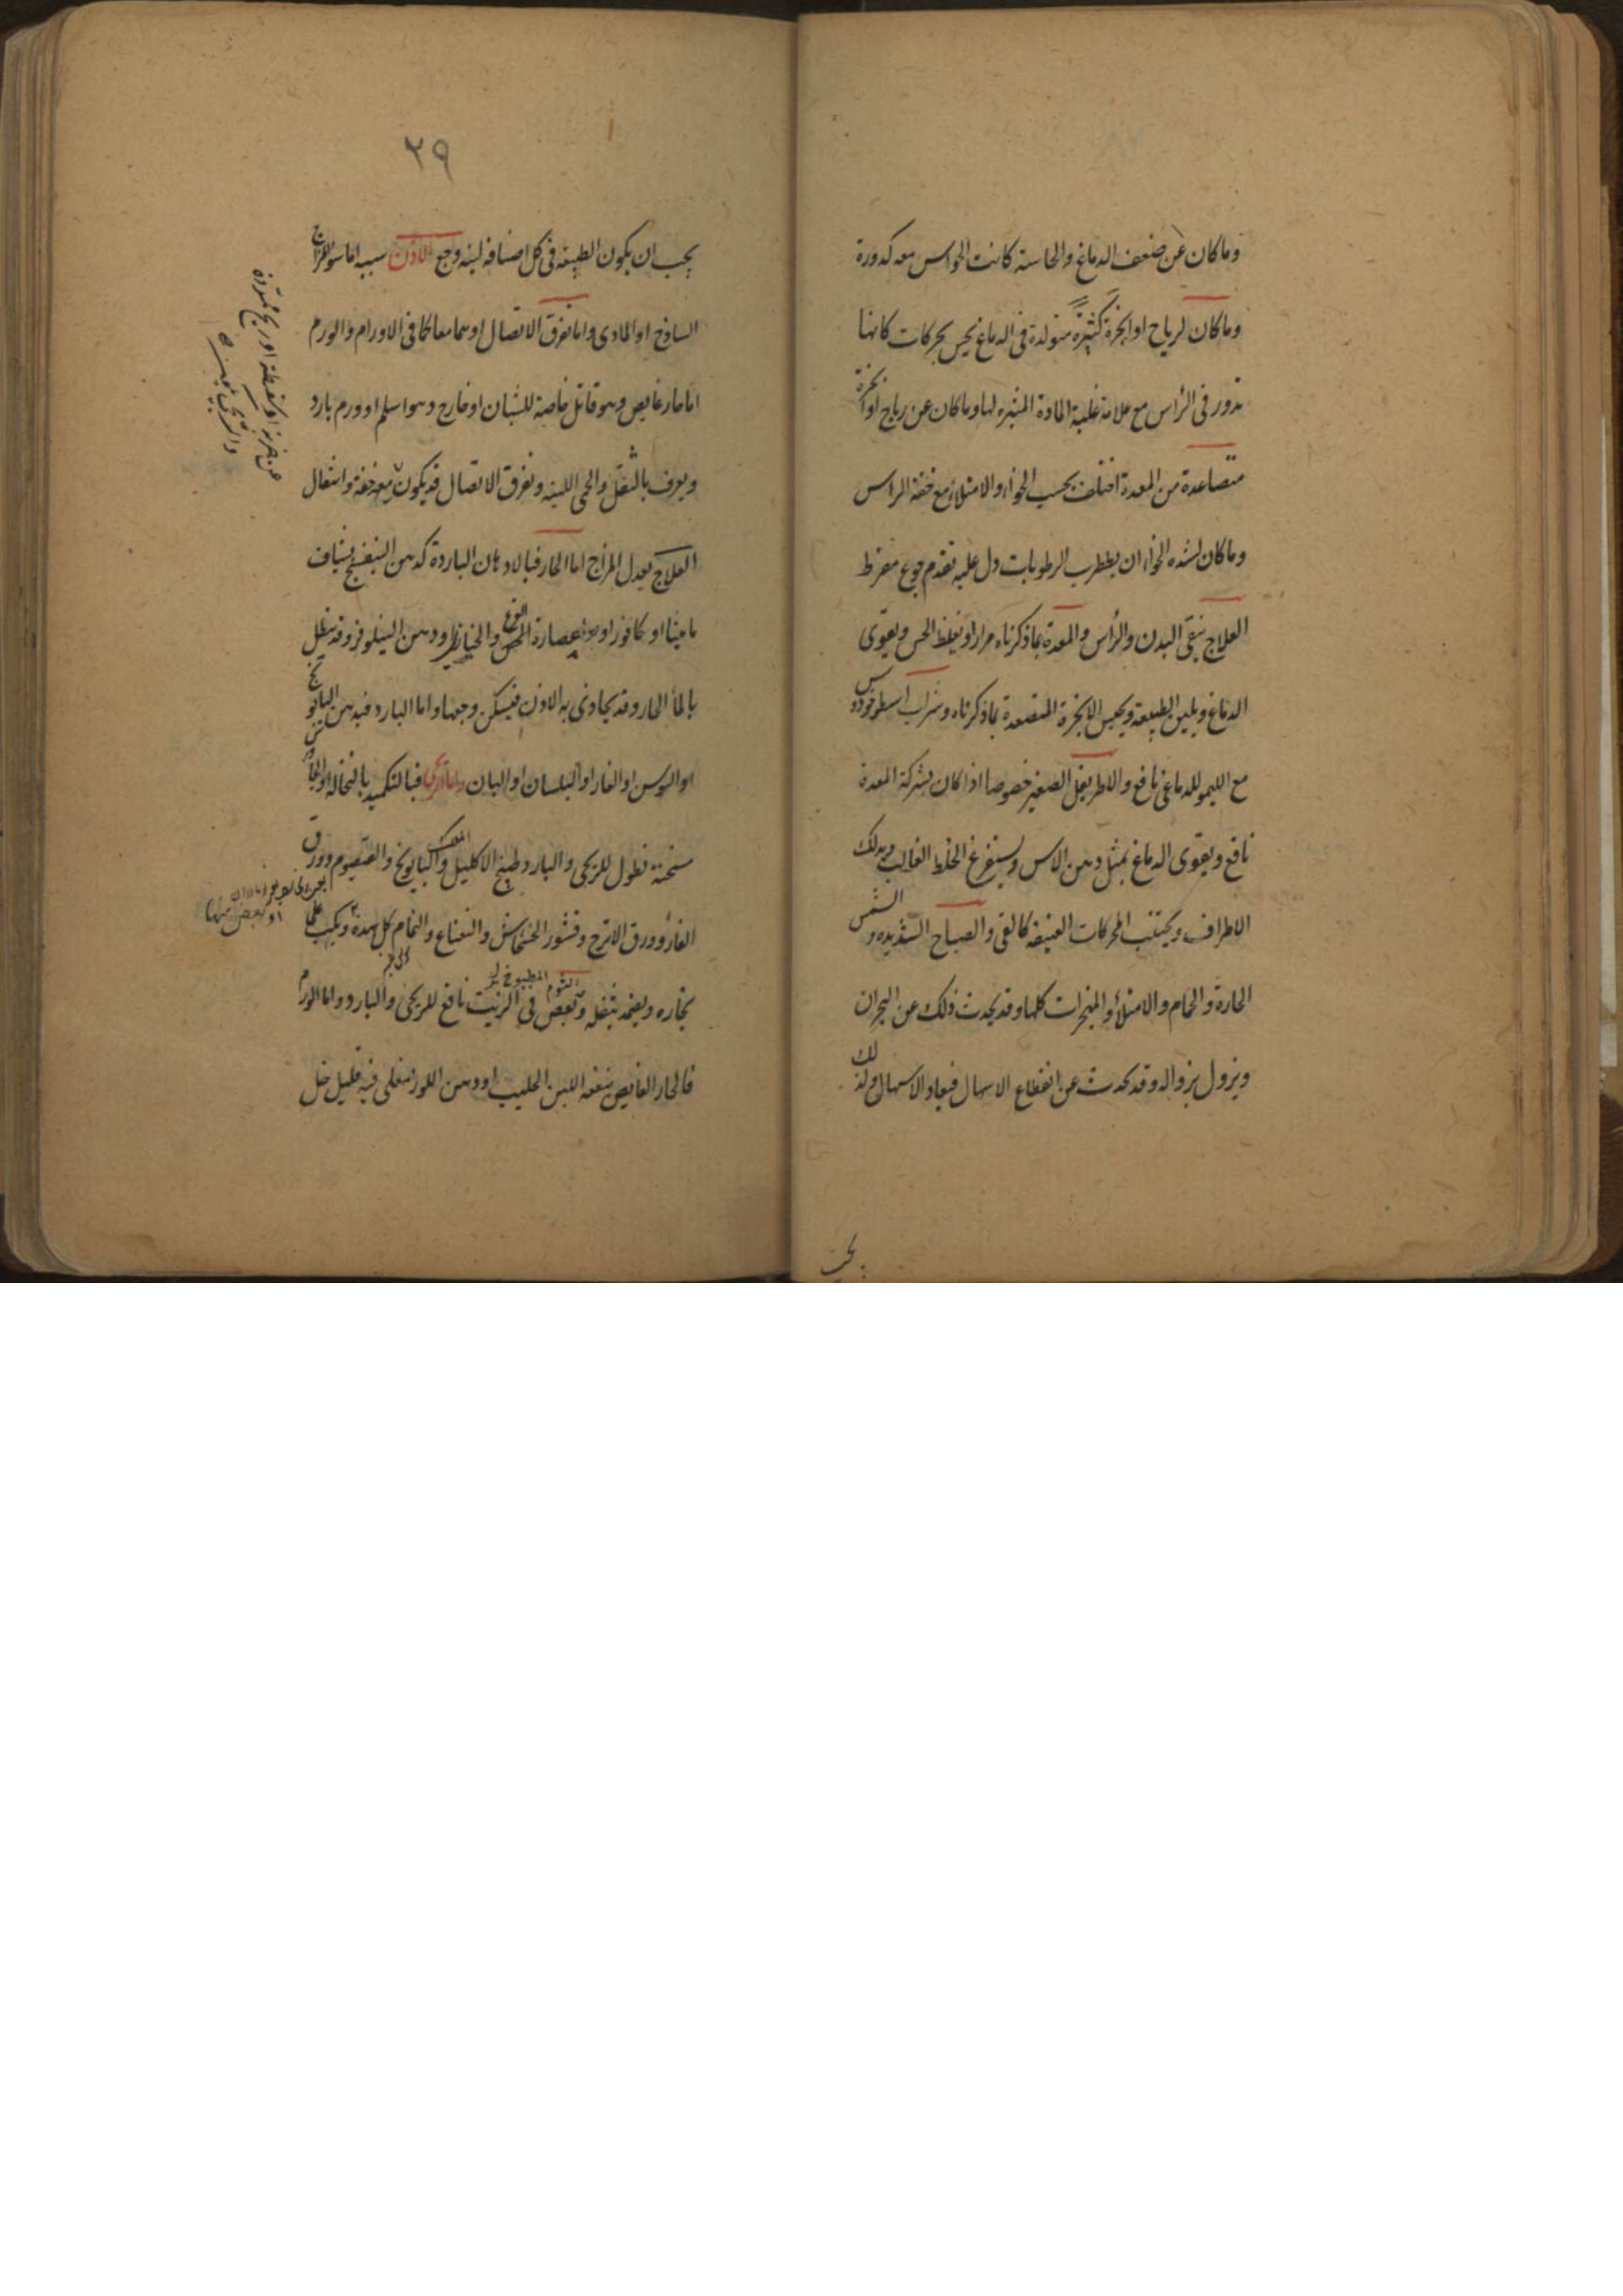 وما كان عن ضعف الدماغ والحاسة كانت الحواس معه كدورة
وما كان لرياح او ابخرة كثيرة متولدة فى الدماغ يحس بحركات كانها
تدور فى الرأس مع علامة غلبة المادة المثيرة لها وما كان عن رياح او ابخرة
متصاعدة من المعدة اختلف بحسب الخواء والامتلاء مع خفة الراس
وما كان لشدة الخواء ان يضطرب الرطوبات دل عليه تقدم جوع مفرط
العلاج ينقى البدن والرأس والمعدة بما ذكرناه مرارا ويغلظ الحس ويقوى
الدماغ ويلين الطبيعة ويحبس الابخرة المتصعدة بما ذكرناه وشراب اسطوخودوس
مع الليمو للدماغى نافع والاطريفل الصغير خصوصا اذا كان بشركة المعدة
نافع ويقوى الدماغ بمثل دهن الاس ويستفرغ الخلط الغالب ويدلك
الاطراف ويجتنب الحركات العنيفة كالقى والصياح الشديد و الشمس
الحارة والحمام والامتلاء والمبخرات كلها وقد يحدث ذلك عن البحران
ويزول بزواله وقد يحدث عن انقطاع الاسهال فيعاد الاسهال ولذلك
يجب
٢٩
يجب ان يكون الطبيعة فى كل اصنافه لينة وجع الاذن سببه اما سوء المزاج
الساذج او المادى واما تفرق الاتصال او هما معا كما فى الاورام والورم
اما حار غايص وهو قاتل خاصة للشبان او خارج وهو اسلم او ورم بارد
ويعرف بالثقل والحمى اللينة وتفرق الاتصال قد يكون ريح معه خفة وانتقال
العلاج يعدل المزاج اما الحار فبالادهان الباردة كدهن البنفسج بشياف
ماميثا او كافور او عصارة القرع والخس والخيار او دهن النيلوفر وقد ينطل
بالماء الحار وقد يحاذى به الاذن فيسكن وجعها واما البارد فبدهن البابونج
او السوسن او الغار او البلسان او البان واما الريحى فبالتكميد بالنخالة او الجاورس
مسخنة نطول للريحى والبارد طبيخ الاكليل الملك والبابونج والقيصوم وورق
الغار وورق الاترج وقشور الخشخاش والنعناع والنمام كل هذه ويكب على
بخاره ويضمد بثفله وبعض الثوم المطبوخ فى الزيت نافع للريحى والبارد واما الورم
فالحار الغايص ينفعه اللبن الحليب او دهن اللوز مغلى فيه قليل خل
عن ضربة او سقطة او ريح ممددة